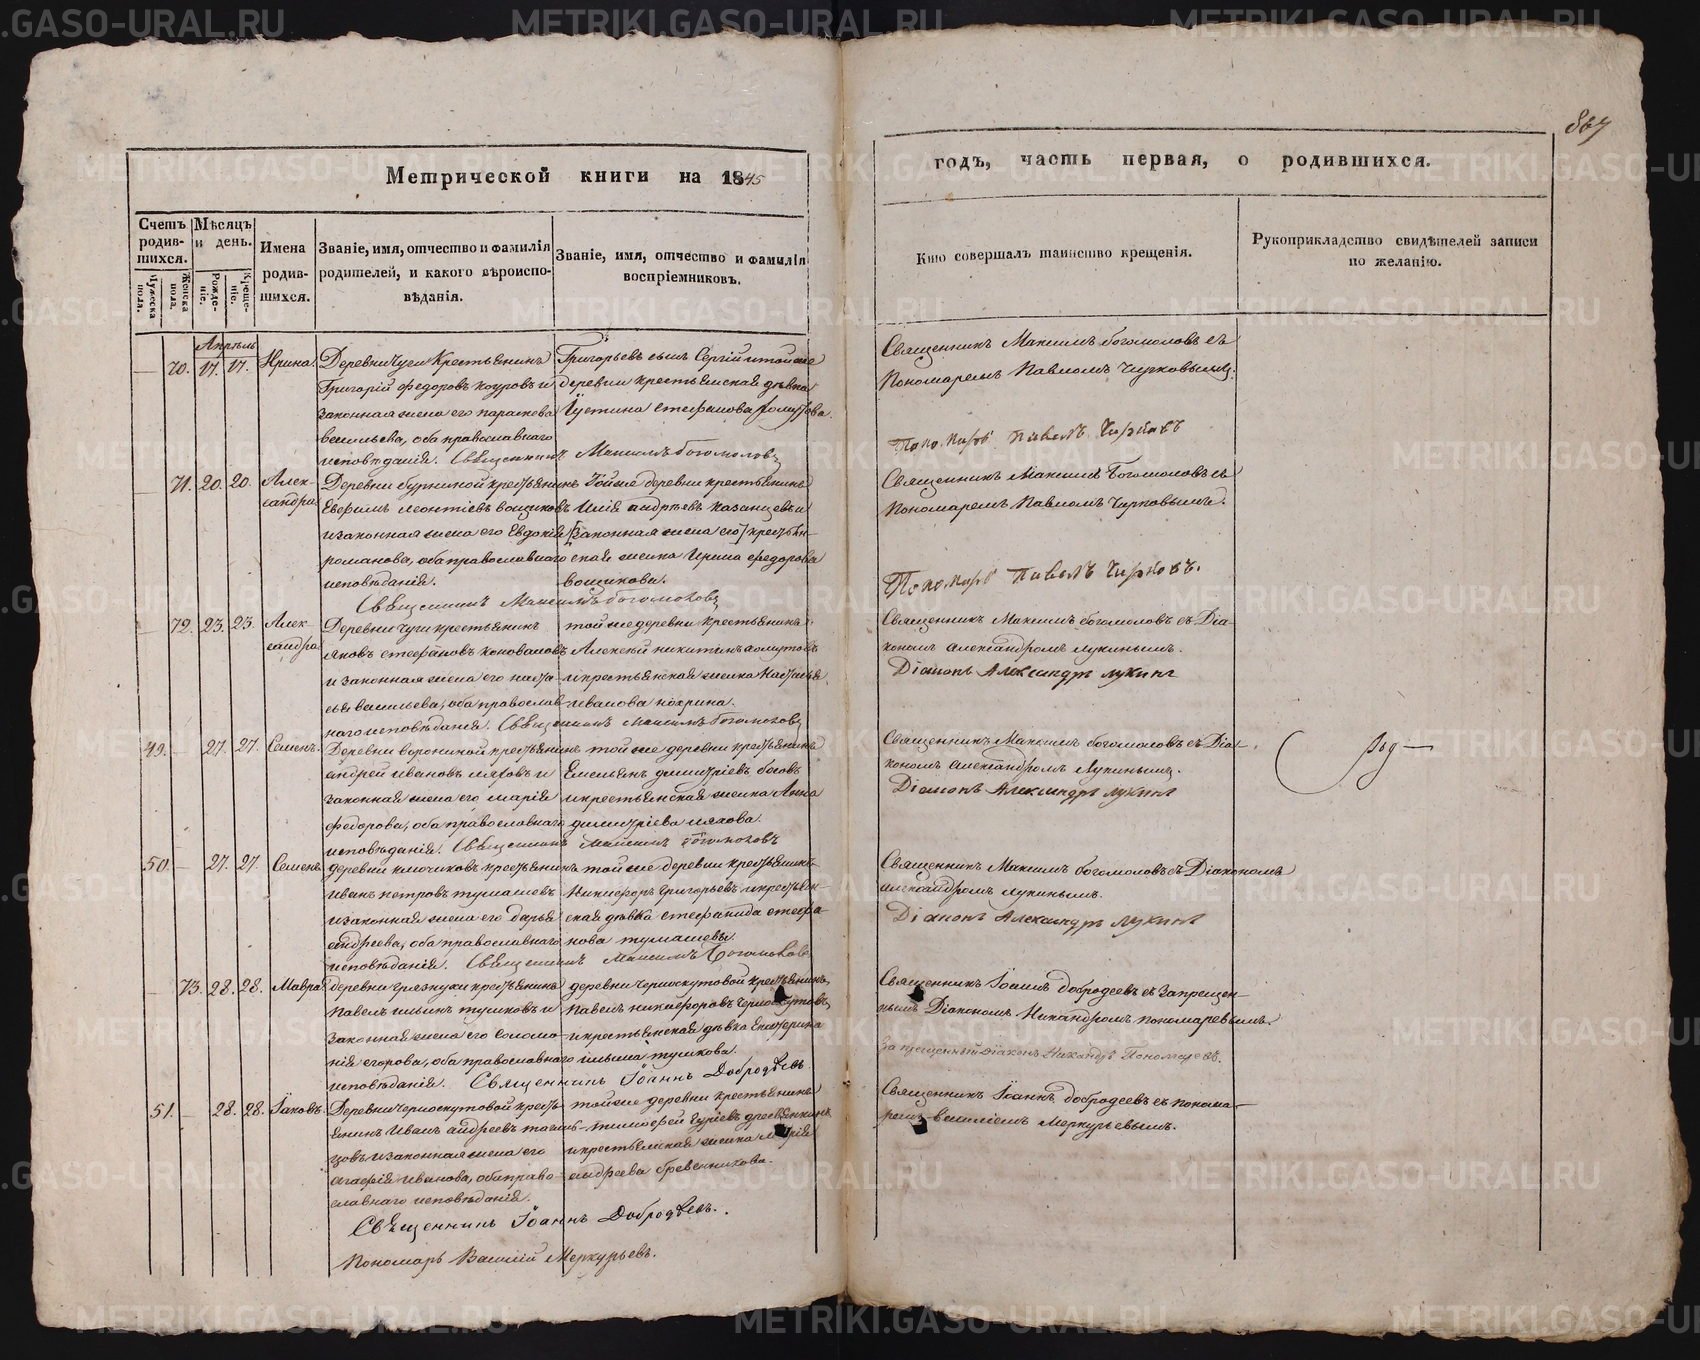 867
Метрической книги на 1845
годъ, часть первая, о родившихся.
Счетъ родив-шихся.
Мужеска пола.
Женска пола.
Мѣсяцъ и день.
Рожде-ніе.
Креще-ніе.
Имена родив-шихся.
Званіе, имя, отчество и фамилія родителей, и какого вѣроиспо-вѣданія.
Званіе, имя, отчество и фамилія воспріемниковъ.
Кто совершалъ таинство крещенія.
Рукоприкладство свидѣтелей записи по желанію.
Апрѣль
70. 17. 17. Ирина.
Деревни Крестьянинъ
Григорій Федоровъ и
законная жена его параскева
васильева, оба православнаго
исповѣданія. Священникъ Максимъ Богомоловъ
Григорьевъ сынъ Сергій и той же
деревни крестьянская дѣвка
Устина стефанова
Священникъ Максимъ богомоловъ съ
Пономаремъ Павломъ Чирковымъ.
Пономарь Павелъ Чирковъ
71. 20. 20. Алек-
сандра
Деревни крестьянинъ
Евфимъ леонтіевъ вощиковъ
и законная жена его Евдокія
романова, оба православнаго
исповѣданія.
Священникъ Максимъ богомоловъ
Той же деревни крестьянинъ
Илія андреевъ казанцевъ и
[законная жена его] крестьян-
ская женка Ирина федорова
вощикова.
Священникъ Максимъ Богомоловъ съ
Пономаремъ Павломъ Чирковымъ.
Пономарь Павелъ Чирковъ.
72. 23. 23. Алек-
сандра
Деревни крестьянинъ
яковъ стефановъ коноваловъ
и законная жена его наста-
сья васильева, оба православ-
наго исповѣданія. Священникъ Максимъ богомоловъ
той же деревни крестьянинъ
Алексѣй никитинъ
и крестьянская женка Настасья
иванова
Священникъ Максимъ богомоловъ съ Діа-
кономъ александромъ лукинымъ.
Діаконъ Александръ лукинъ
49. 27. 27. Семенъ.
Деревни ворониной крестьянинъ
андрей ивановъ ляховъ и
законная жена его марія
федорова, оба православнаго
исповѣданія. Священникъ Максимъ богомоловъ
той же деревни крестьянинъ
Емельянъ димитріевъ
и крестьянская женка Анна
димитріева ляхова.
Священникъ Максимъ богомоловъ съ Діа-
кономъ александромъ Лукинымъ.
Діаконъ Александръ лукинъ
50. 27. 27. Семенъ
деревни ключиковъ крестьянинъ
иванъ петровъ тумашевъ
и законная жена его дарья
андреева, оба православнаго
исповѣданія. Священникъ Максимъ Богомоловъ
той же деревни крестьянинъ
Никифоръ григорьевъ и крестьян-
ская дѣвка стефанида стефа-
нова тумашева.
Священникъ Максимъ богомоловъ съ Діакономъ
александромъ лукинымъ.
Діаконъ Александръ лукинъ
73. 28. 28. Мавра
деревни грязнухи крестьянинъ
Павелъ ильинъ тушковъ и
законная жена его соломо-
нія егорова, оба православнаго
исповѣданія. Священникъ Іоаннъ Добродѣевъ
деревни черноскутовой крестьянинъ
Павелъ никифоровъ черноскутовъ
и крестьянская дѣвка Екатерина
ильина тушкова.
Священникъ Іоаннъ добродеевъ съ запрещен-
нымъ Діакономъ Никандромъ пономаревымъ.
запрещенный діаконъ Никандръ Пономаревъ.
51. 28. 28. Іаковъ.
Деревни черноскутовой кресть-
янинъ Иванъ андреевъ
и законная жена его
агафія иванова, оба право-
славнаго исповѣданія.
Священникъ Іоаннъ Добродѣевъ.
Пономарь Василій Меркурьевъ.
той же деревни крестьянинъ
тимофей
и крестьянская женка марія
андреева
Священникъ Іоаннъ добродеевъ съ понома-
ремъ василіемъ Меркурьевымъ.